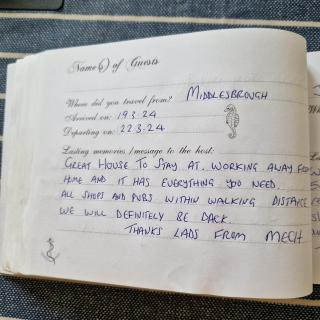 Name(s) of Guests
Where did you travel from? MIDDLESBROUGH
Arrived on: 19.3.24
Departing on: 22.3.24
Lasting memories / message to the host:
GREAT HOUSE TO STAY AT. WORKING AWAY FROM
HOME AND IT HAS EVERYTHING YOU NEED.
ALL SHOPS AND PUBS WITHIN WALKING DISTANCE
WE WILL DEFINITELY BE BACK.
THANKS LADS FROM MECH